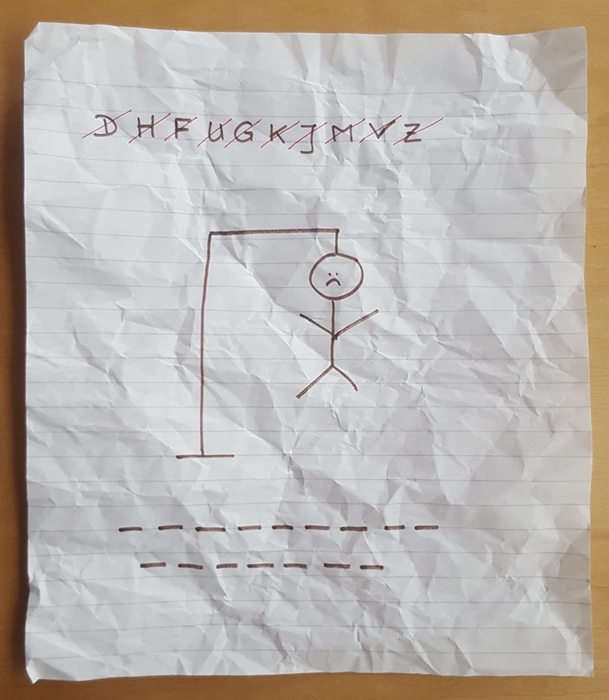 D H F U G K J M V Z